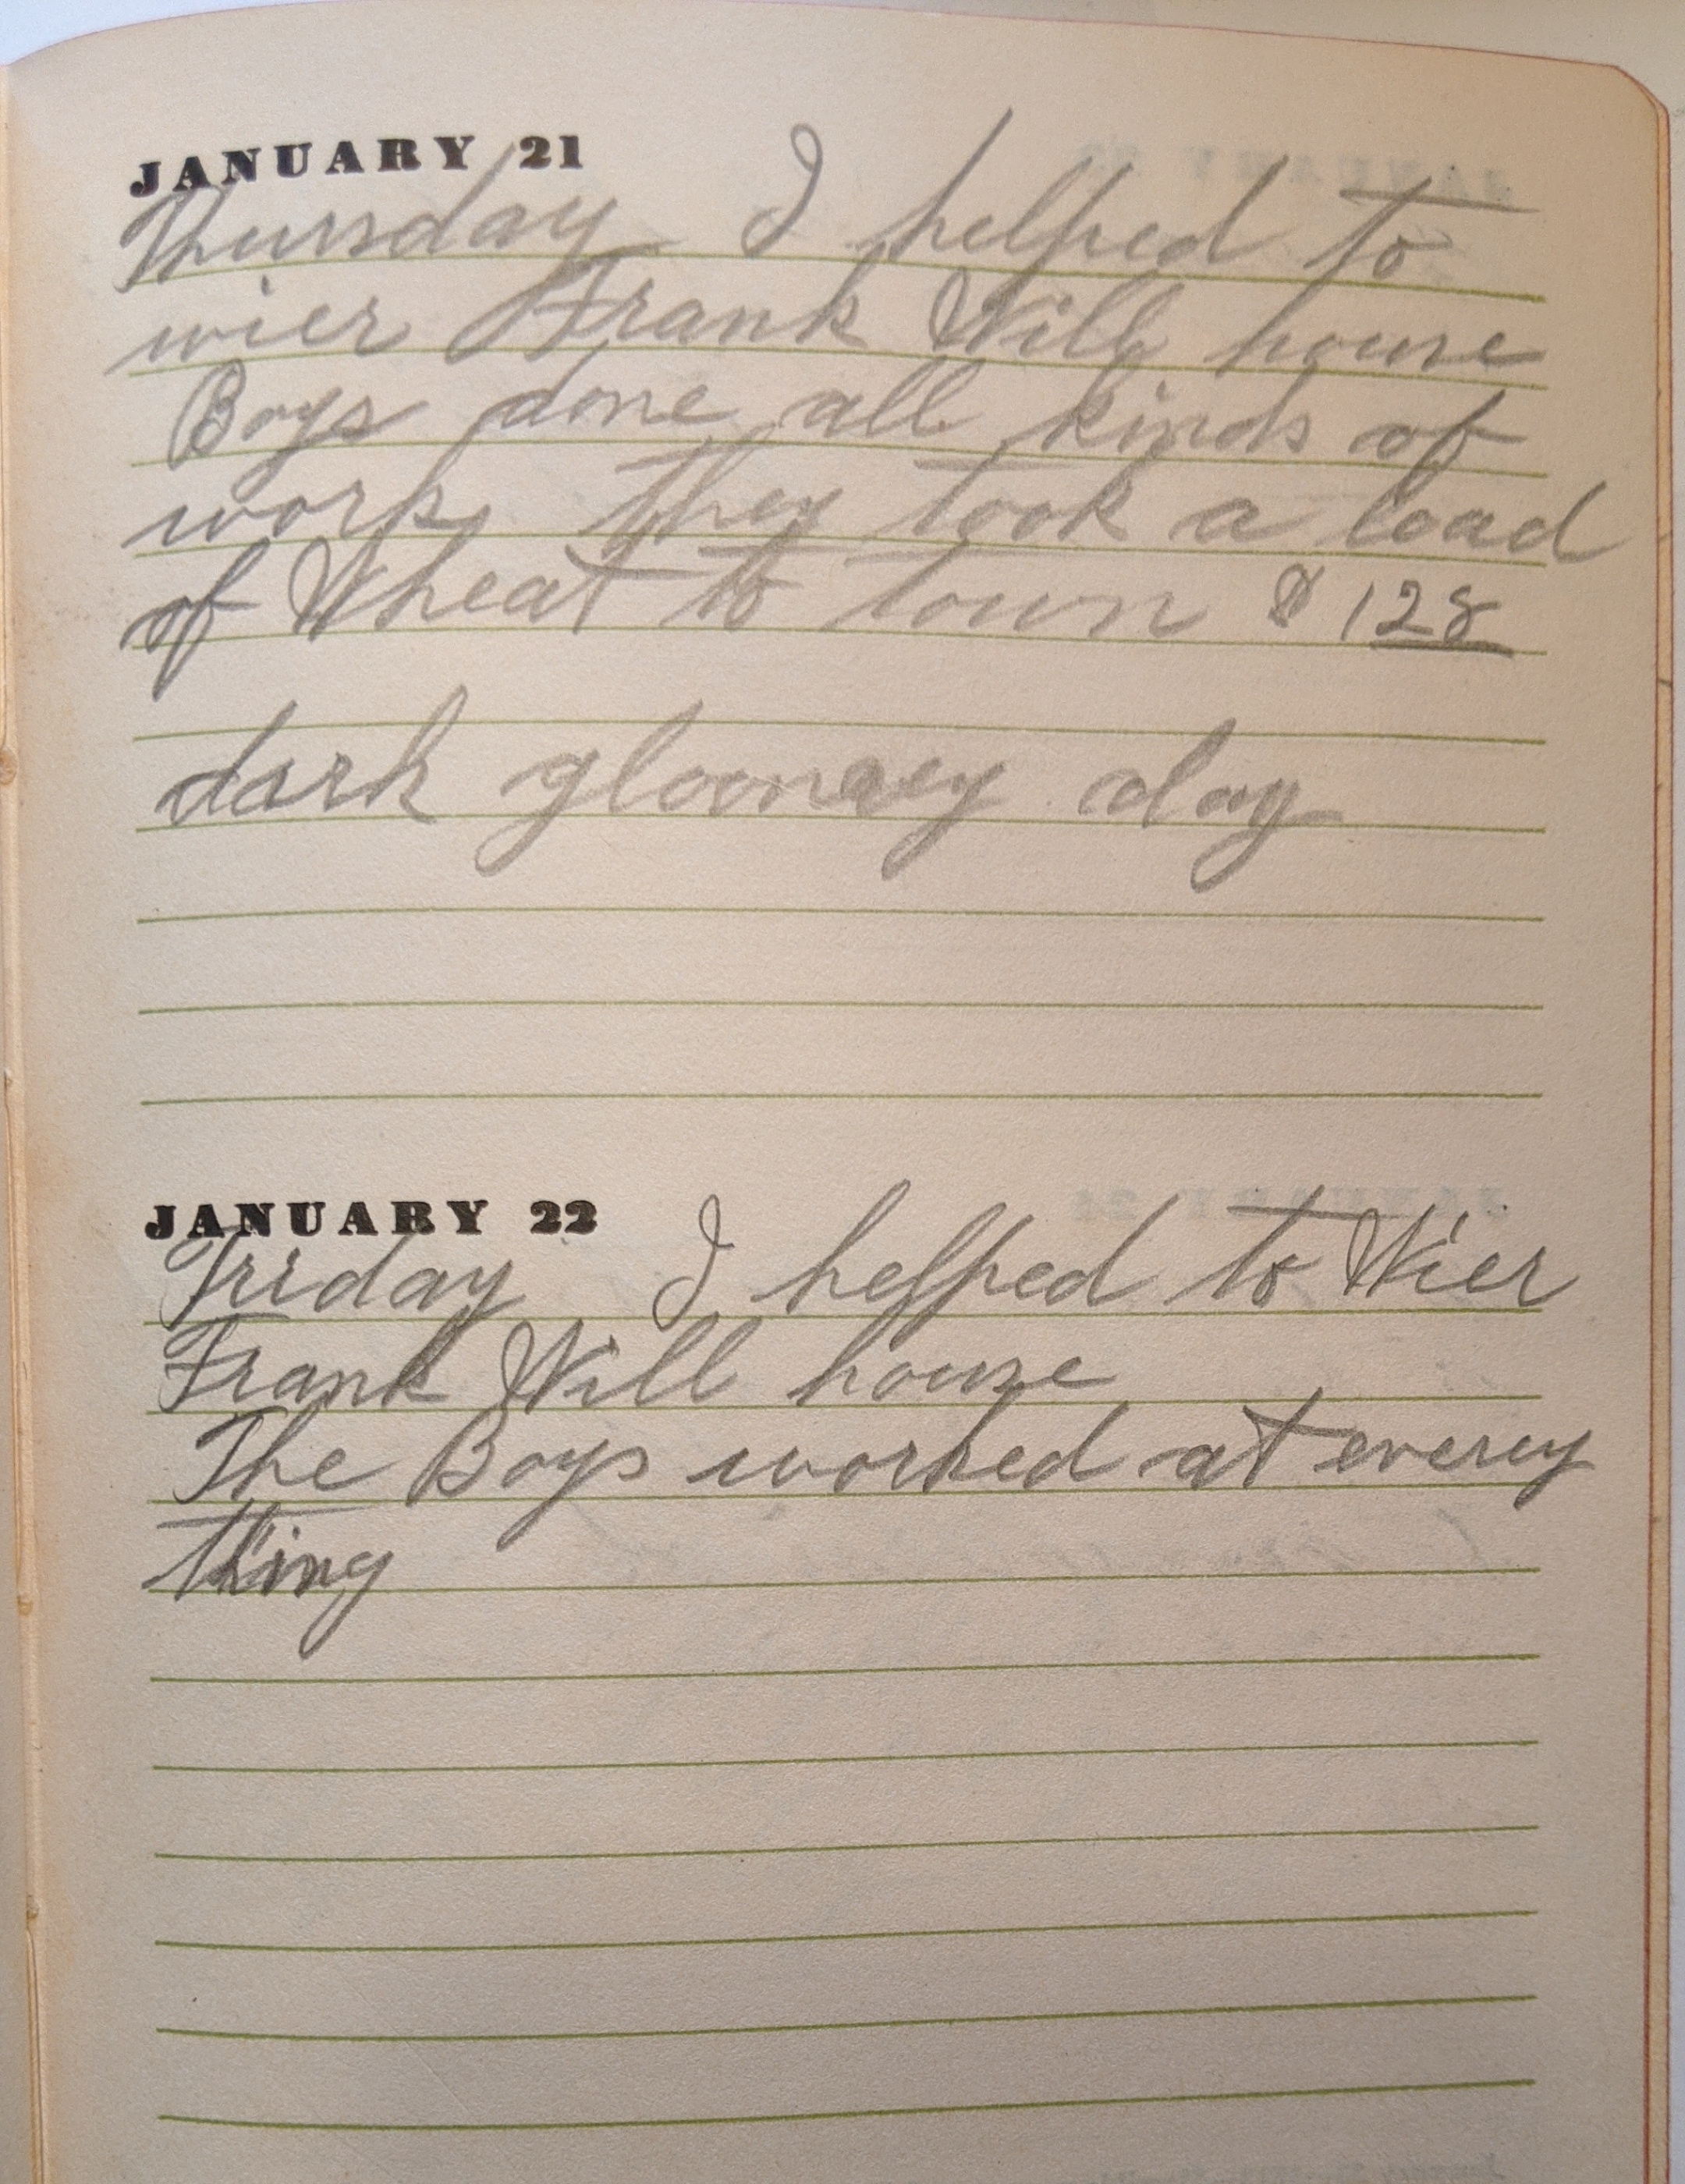 JANUARY 21
Thursday I helped to
wier Frank Will house
Boys done all kinds of
work, they took a load
of Wheat to town $ 128
dark gloomey day
JANUARY 22
Friday I helped to Wier
Frank Will house
The Boys worked at everey
thing